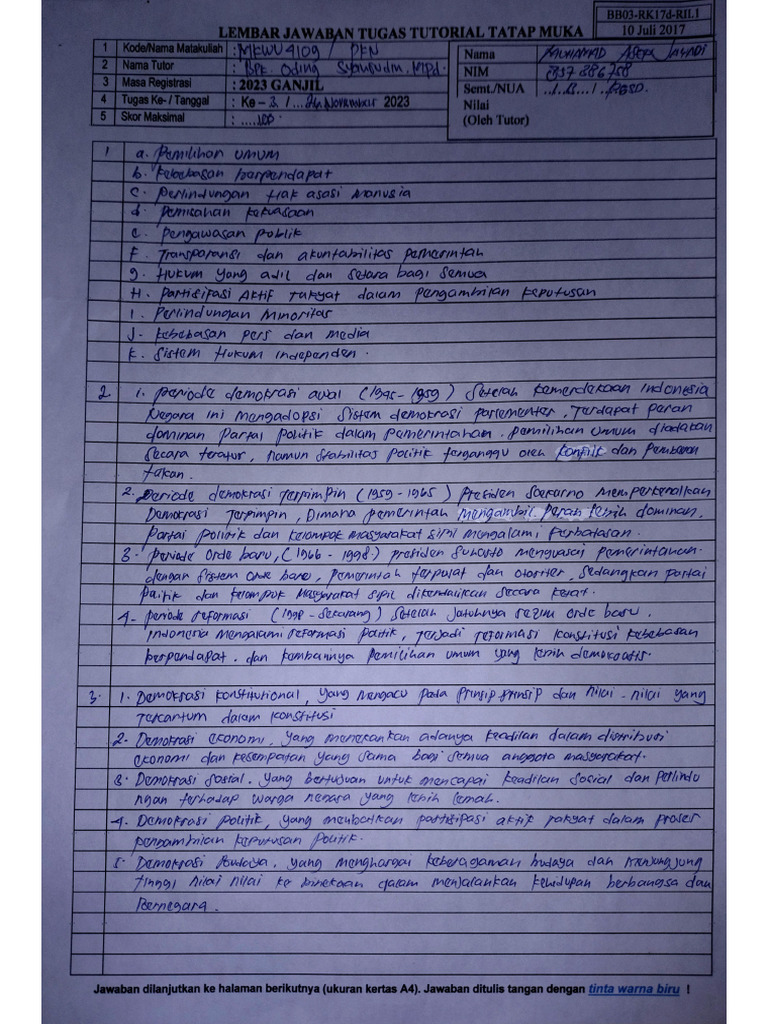 BB03-RK17d-RII.1
10 Juli 2017
LEMBAR JAWABAN TUGAS TUTORIAL TATAP MUKA
1 Kode/Nama Matakuliah : MKWU4109 / PKN
2 Nama Tutor : Bpk. Oding Syamsudin, M.pd.
3 Masa Registrasi : 2023 GANJIL
4 Tugas Ke- / Tanggal Ke – 3 / ... November 2023
5 Skor Maksimal : ....100
Nama Muhammad
NIM 857886758
Semt./NUA
Nilai
(Oleh Tutor)
1 a. Pemilihan umum
b. Kebebasan berpendapat
c. Perlindungan Hak asasi Manusia
d. Pemisahan kekuasaan
e. Pengawasan publik
F. Transparansi dan akuntabilitas pemerintah
g. Hukum yang adil dan setara bagi semua
H. Partisipasi Aktif rakyat dalam pengambilan keputusan
I. Perlindungan Minoritas
J. Kebebasan Pers dan media
K. Sistem Hukum independen.
2 1. periode demokrasi awal (1945 - 1959) Setelah kemerdekaan Indonesia
Negara ini mengadopsi Sistem demokrasi parlementer, Terdapat peran
dominan Partai Politik dalam Pemerintahan. Pemilihan umum diadakan
secara teratur, namun stabilitas politik terganggu oleh konflik dan Pemberon
takan.
2. Periode demokrasi Terpimpin (1959 - 1965) Presiden Soekarno memperkenalkan
Demokrasi Terpimpin, Dimana pemerintah mengambil peran lebih dominan,
Partai politik dan kelompok masyarakat sipil mengalami Perbatasan.
3. periode Orde baru, (1966 - 1998) presiden Suharto menguasai pemerintahan
dengan sistem orde baru, pemerintah terpusat dan otoriter, sedangkan partai
Politik dan kelompok Masyarakat sipil dikendalikan secara kerat.
4. periode reformasi (1998 - Sekarang) Setelah Jatuhnya rezim orde baru.
Indonesia Mengalami reformasi Politik, Terjadi reformasi konstitusi kebebasan
berpendapat. dan kembalinya Pemilihan umum yang lebih demokratis.
3. 1. Demokrasi konstitutional, yang mengacu pada Prinsip prinsip dan nilai - nilai yang
Tercantum dalam konstitusi
2. Demokrasi ekonomi, yang menekankan adanya keadilan dalam distribusi
ekonomi dan kesempatan yang sama bagi semua anggota masyarakat.
3. Demokrasi sosial. yang bertujuan untuk mencapai keadilan Sosial dan Perlindu
ngan terhadap warga negara yang lebih lemah.
4. Demokrasi politik, yang melibatkan partisipasi aktif rakyat dalam proses
pengambilan keputusan Politik.
5. Demokrasi Budaya, yang menghargai keberagaman budaya dan Menjunjung
Tinggi nilai nilai ke binekaan dalam menjalankan kehidupan berbangsa dan
Bernegara.
Jawaban dilanjutkan ke halaman berikutnya (ukuran kertas A4). Jawaban ditulis tangan dengan tinta warna biru !